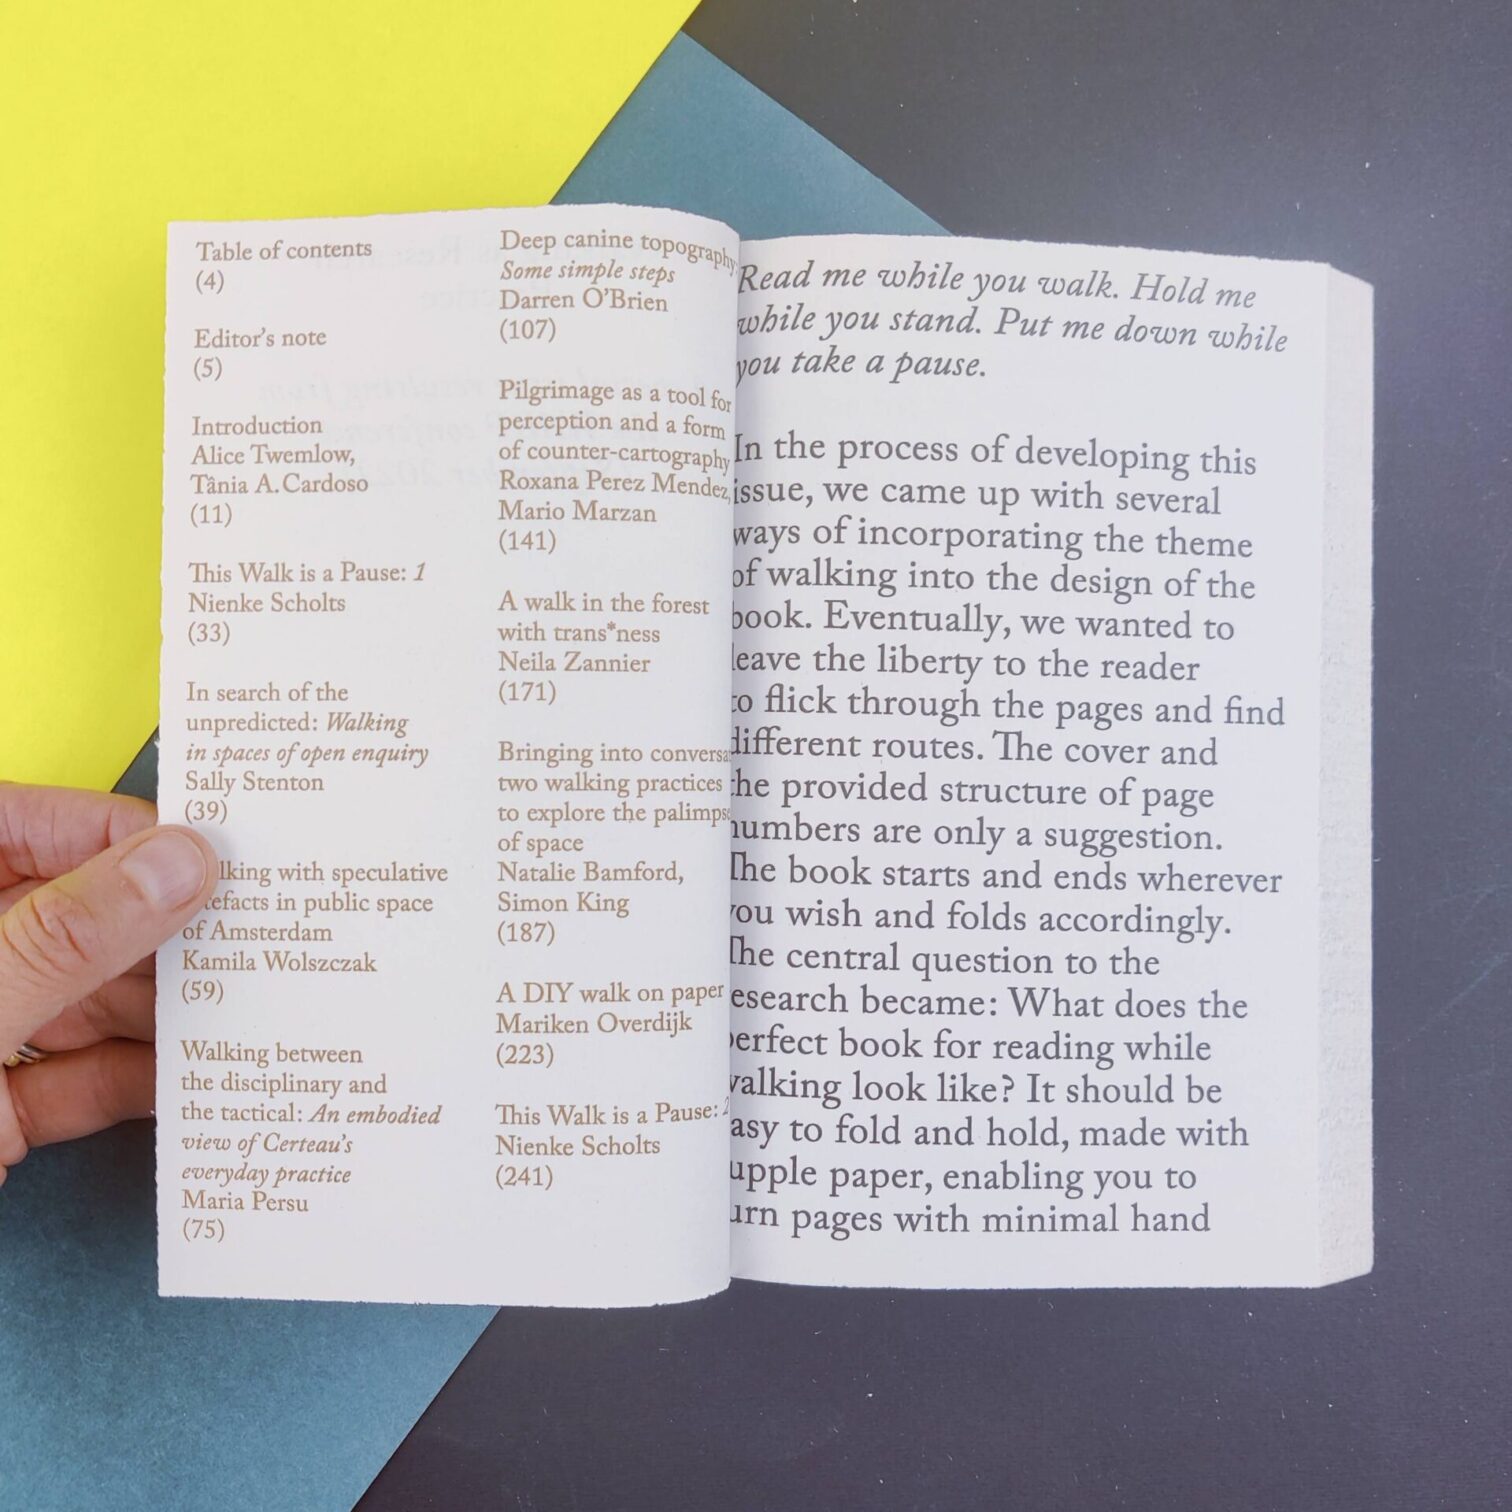 Table of contents
(4)
Editor's note
(5)
Introduction
Alice Twemlow,
Tânia A. Cardoso
(11)
This Walk is a Pause: 1
Nienke Scholts
(33)
In search of the
unpredicted: Walking
in spaces of open enquiry
Sally Stenton
(39)
with speculative
in public space
of Amsterdam
Kamila Wolszczak
(59)
Walking between
the disciplinary and
the tactical: An embodied
view of Certeau's
everyday practice
Maria Persu
(75)
Deep canine topography:
Some simple steps
Darren O'Brien
(107)
Pilgrimage as a tool for
perception and a form
of counter-cartography
Roxana Perez Mendez,
Mario Marzan
(141)
A walk in the forest
with trans*ness
Neila Zannier
(171)
Bringing into
two walking practices
to explore the
of space
Natalie Bamford,
Simon King
(187)
A DIY walk on paper
Mariken Overdijk
(223)
This Walk is a Pause: 2
Nienke Scholts
(241)
Read me while you walk. Hold me
while you stand. Put me down while
you take a pause.
In the process of developing this
issue, we came up with several
ways of incorporating the theme
of walking into the design of the
book. Eventually, we wanted to
leave the liberty to the reader
to flick through the pages and find
different routes. The cover and
the provided structure of page
numbers are only a suggestion.
The book starts and ends wherever
you wish and folds accordingly.
The central question to the
research became: What does the
perfect book for reading while
walking look like? It should be
easy to fold and hold, made with
supple paper, enabling you to
turn pages with minimal hand